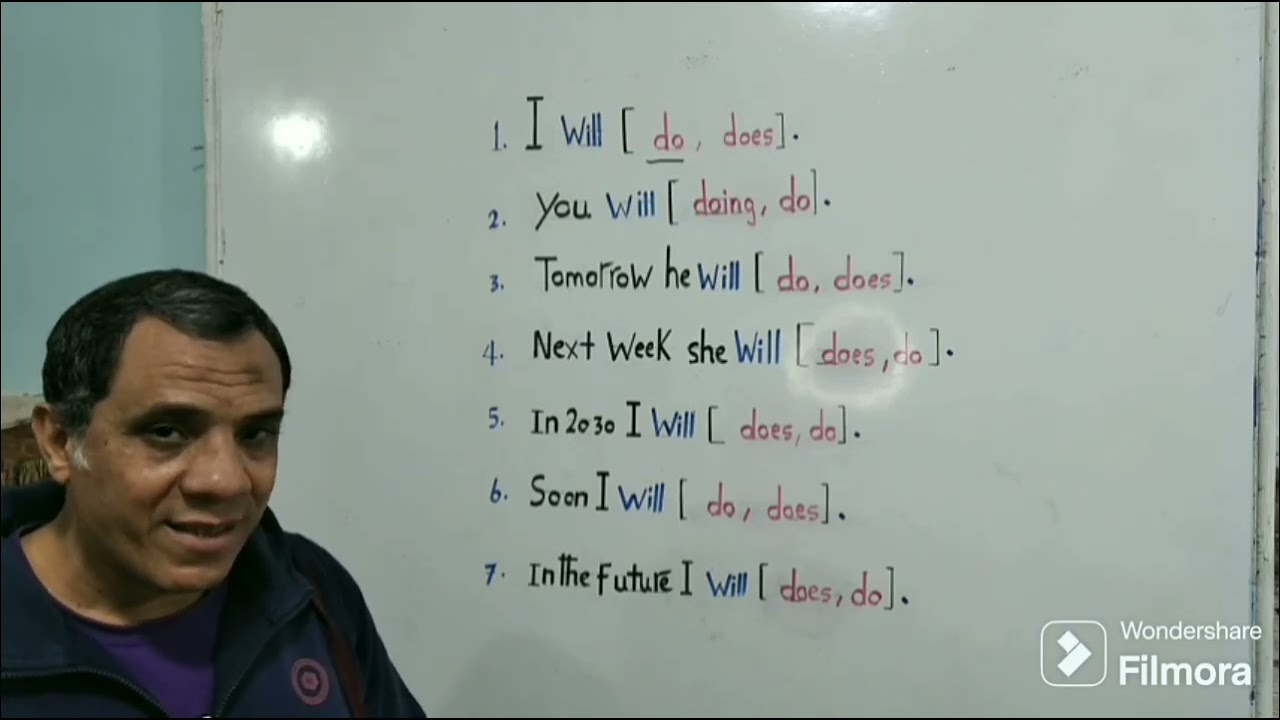 1. I Will [ do, does].
2. You Will [ doing, do].
3. Tomorrow he Will [ do, does].
4. Next Week she Will [ does, do ].
5. In 2030 I Will [ does, do].
6. Soon I Will [ do, does].
7. In the Future I Will [ does, do].
Wondershare
Filmora